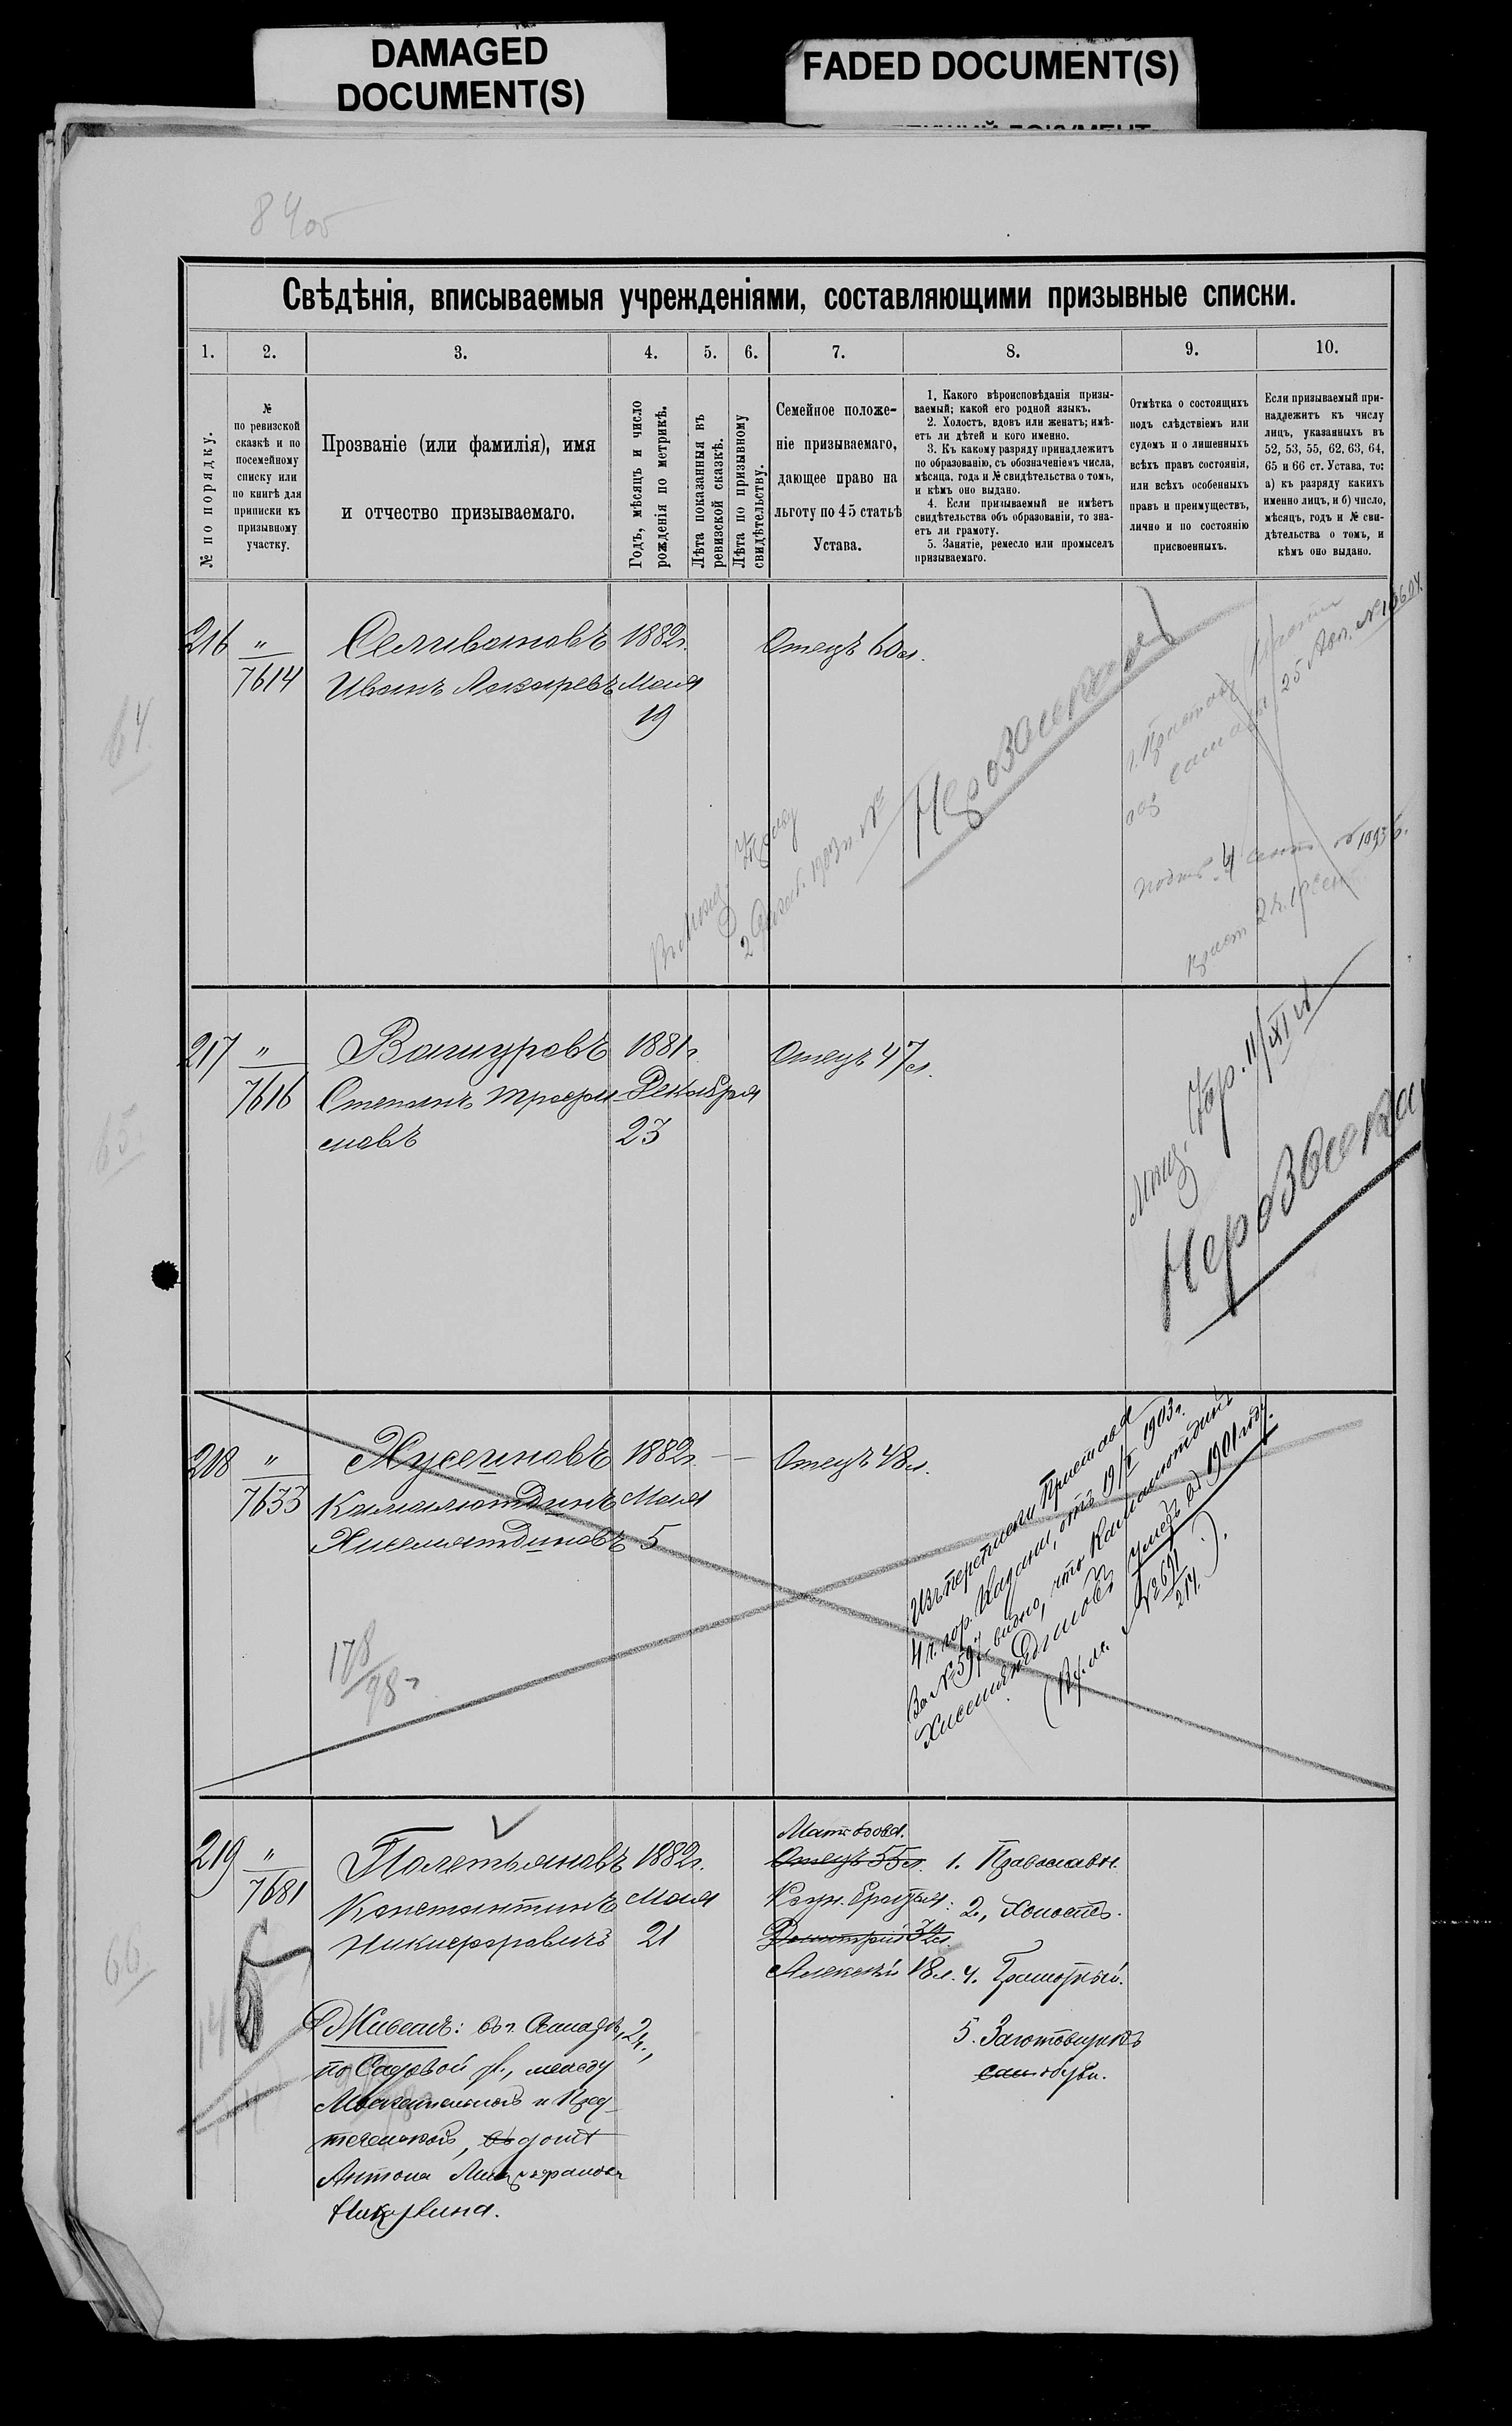 DAMAGED
DOCUMENT(S)
FADED DOCUMENT(S)
84об
Свѣдѣнія, вписываемыя учрежденіями, составляющими призывные списки.
1. 2. 3. 4. 5. 6. 7. 8. 9. 10.
№ по порядку.
№
по ревизской
сказкѣ и по
посемейному
списку или
по книгѣ для
приписки къ
призывному
участку.
Прозваніе (или фамилія), имя
и отчество призываемаго.
Годъ, мѣсяцъ и число
рожденія по метрикѣ.
Лѣта показанныя въ
ревизской сказкѣ.
Лѣта по призывному
свидѣтельству.
Семейное положе-
ніе призываемаго,
дающее право на
льготу по 45 статьѣ
Устава.
1. Какого вѣроисповѣданія призы-
ваемый; какой его родной языкъ.
2. Холостъ, вдовъ или женатъ; имѣ-
етъ ли дѣтей и кого именно.
3. Къ какому разряду принадлежитъ
по образованію, съ обозначеніемъ числа,
мѣсяца, года и № свидѣтельства о томъ,
и кѣмъ оно выдано.
4. Если призываемый не имѣетъ
свидѣтельства объ образованіи, то зна-
етъ ли грамоту.
5. Занятіе, ремесло или промыселъ
призываемаго.
Отмѣтка о состоящихъ
подъ слѣдствіемъ или
судомъ и о лишенныхъ
всѣхъ правъ состоянія,
или всѣхъ особенныхъ
правъ и преимуществъ,
лично и по состоянію
присвоенныхъ.
Если призываемый при-
надлежитъ къ числу
лицъ, указанныхъ въ
52, 53, 55, 62, 63, 64,
65 и 66 ст. Устава, то:
а) къ разряду какихъ
именно лицъ, и б) число,
мѣсяцъ, годъ и № сви-
дѣтельства о томъ, и
кѣмъ оно выдано.
64
216 " Селивановъ 1882г. Отецъ 60 л.
7614 Иванъ Макаровъ Мая
19
Неразысканъ
25 Апр. № 10604
65.
217 " Вашуровъ 1881г. Отецъ 47 л.
7616 Степанъ Трофи- Декабря
мовъ 23
Мѣщ. Упр. 11/XI
Неразыскан
218 " Хусеиновъ 1882г. — Отецъ 48 л.
7633 Камалютдинъ Мая
Хисамутдиновъ 5
178
98г
Изъ переписки Пристава
4 ч. гор. Казани, отъ 19/V 1903г.
За № 597 видно, что Камалютдинъ
Хисамутдиновъ умеръ въ 1901 году.
№ 691
214
66.
219 " Полетьяновъ 1882г. Мать вдова.
7681 Константинъ Мая Отецъ 55 л. 1. Православн.
Никифоровичъ 21 Родн. братья: 2, Холостъ.
Дмитрій 32 л.
Алексѣй 18 л. 4. Грамотный.
5. Заготовщикъ
обуви.
Живетъ: въ г. Самарѣ, 2 ч.,
по Садовой ул., между
Москательной и Пред-
теченской, въ домѣ
Антона
Никулина.